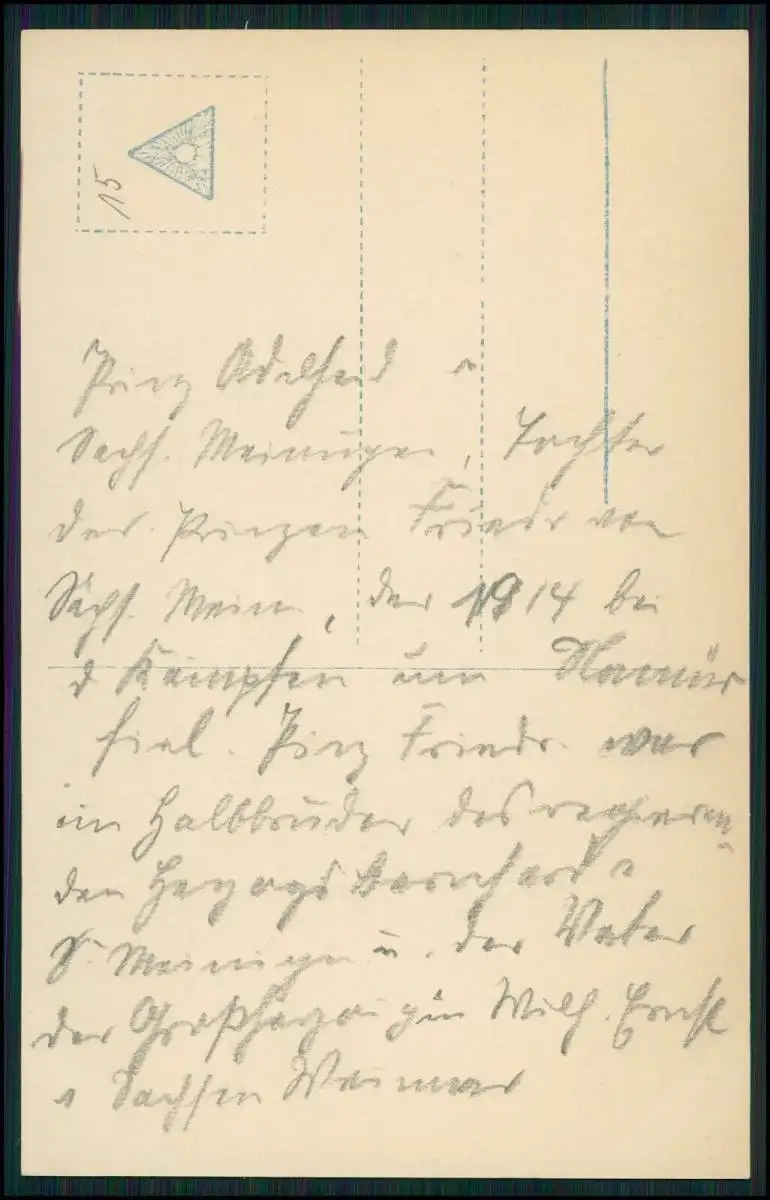 15
Prinz Adelheid v
Sachs. Meiningen, Tochter
des Prinzen Friedr von
Sachs. Mein, der 1914 bei
d Kämpfen um Namur
fiel. Prinz Friedr. war
ein Halbbruder des regieren
den Herzogs Bernhard v
S. Meiningen u. der Vater
der Großherzogin Wilh. Ernst
v Sachsen Weimar